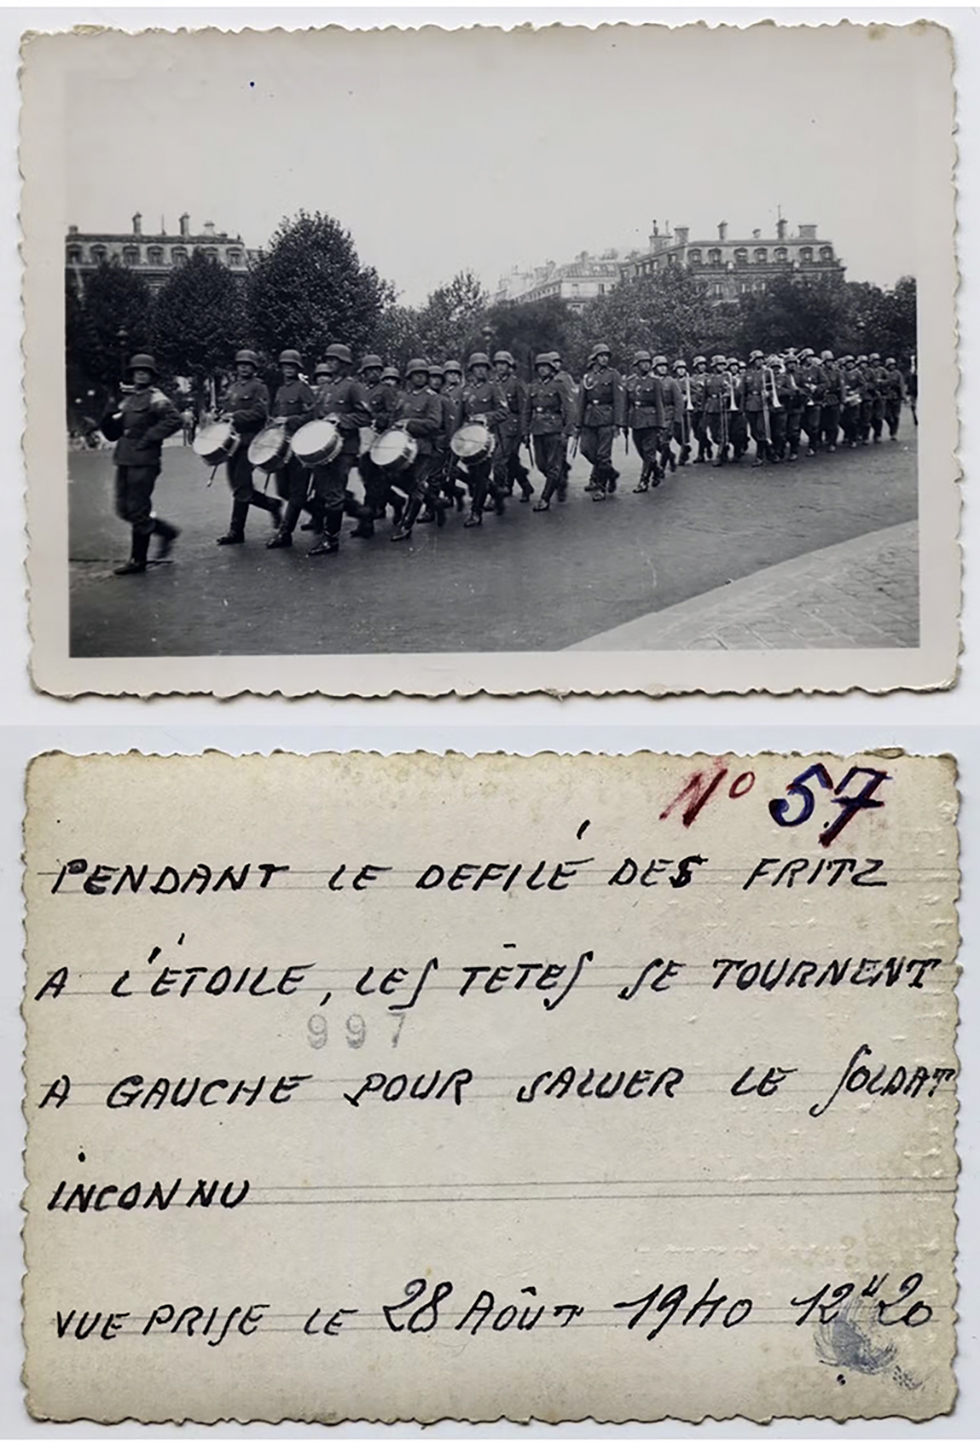 N° 57
PENDANT LE DEFILÉ DES FRITZ
A L'ÉTOILE, LES TÊTES SE TOURNENT
997
A GAUCHE POUR SALUER LE SOLDAT
INCONNU
VUE PRISE LE 28 AOÛT 1940 12H20